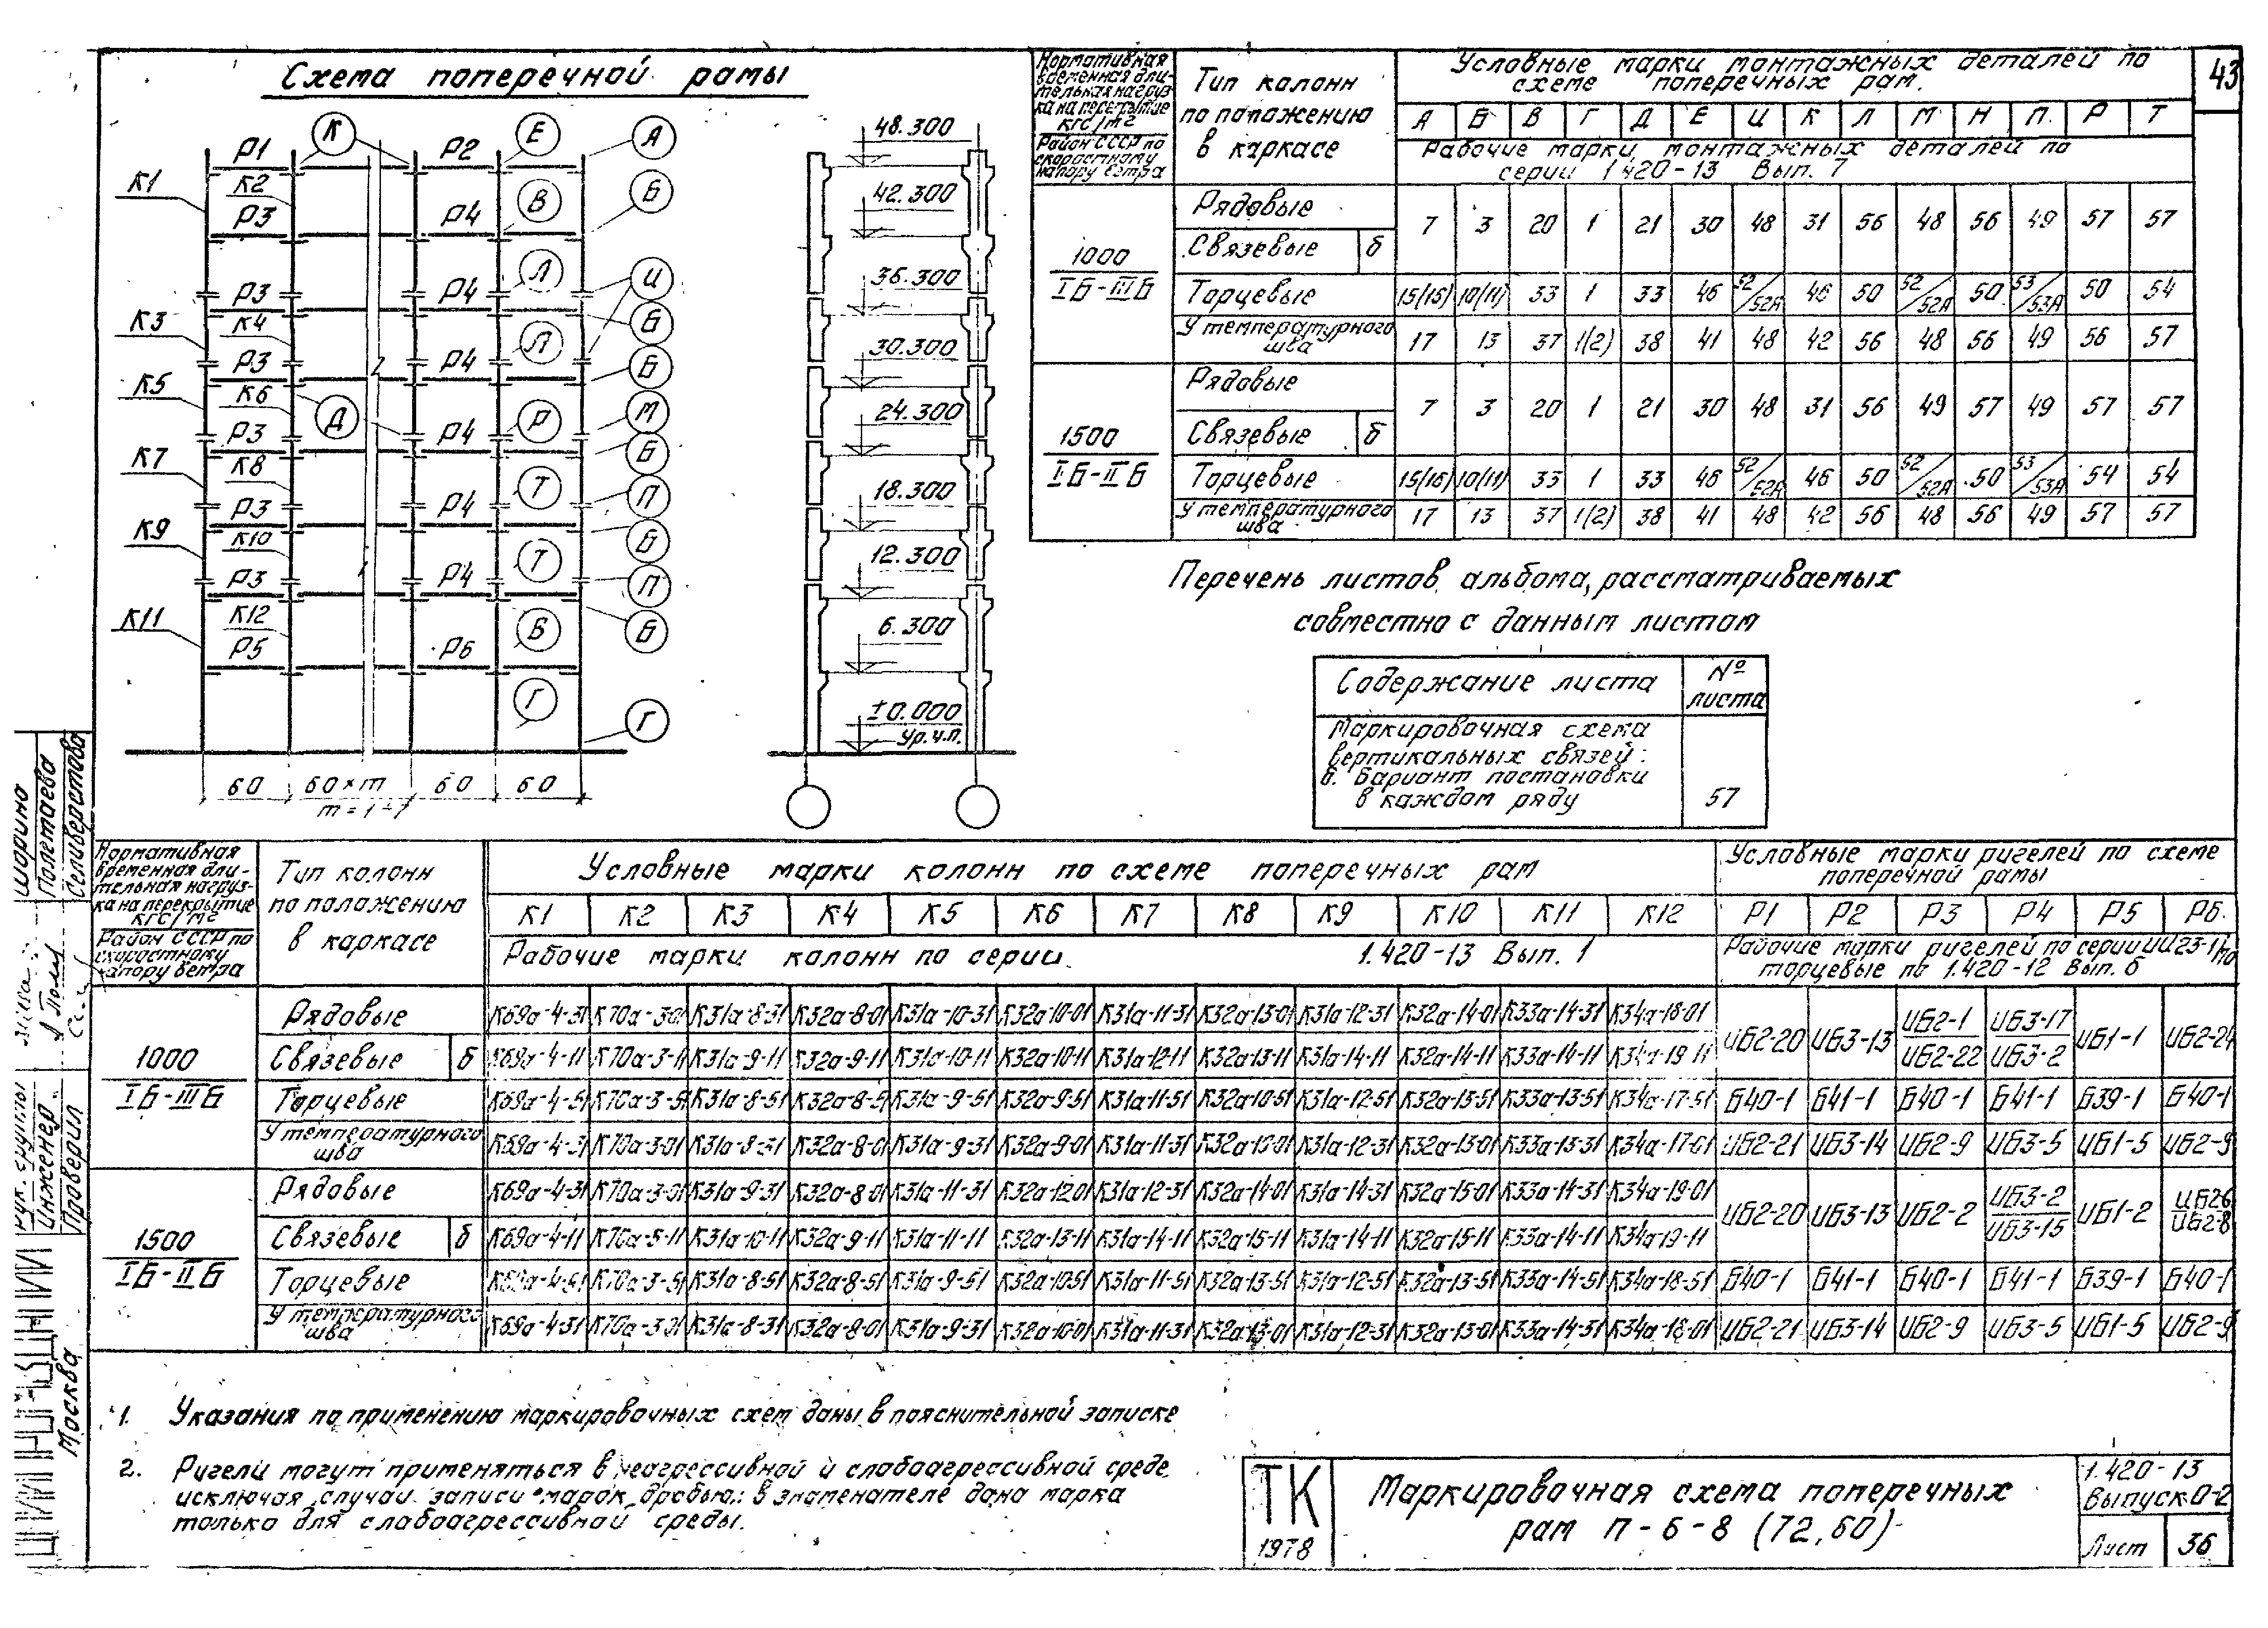 43
Схема поперечной рамы
К Е А
Р1 Р2
К1 К2 В Б
Р3 Р4
Л И
Р3 Р4
К3 К4 Б
Р3 Р4 Л
К5 К6 Б
Д Р М
Р3 Р4
К7 К8 Б
Т П
Р3 Р4
К9 К10 Б
Т П
Р3 Р4
К11 К12 В Б
Р5 Р6
Г Г
60 60×m 60 60
m=1÷7
48.300
42.300
36.300
30.300
24.300
18.300
12.300
6.300
±0.000
Ур.ч.п.
Нормативная временная длительная нагрузка на перекрытие кгс/м2
Район СССР по скоростному напору ветра
Тип колонн по положению в каркасе
Условные марки монтажных деталей по схеме поперечных рам.
А Б В Г Д Е И К Л М Н П Р Т
Рабочие марки монтажных деталей по серии 1.420-13 Вып. 7
1000
IБ-IIIБ
Рядовые
Связевые б
7 3 20 1 21 30 48 31 56 48 56 49 57 57
Торцевые 15(16) 10(11) 33 1 33 46 52/52А 46 50 52/52А 50 53/53А 50 54
У температурного шва 17 13 37 1(2) 38 41 48 42 56 48 56 49 56 57
1500
IБ-IIБ
Рядовые
Связевые б
7 3 20 1 21 30 48 31 56 49 57 49 57 57
Торцевые 15(16) 10(11) 33 1 33 46 52/52А 46 50 52/52А 50 53/53А 54 54
У температурного шва 17 13 37 1(2) 38 41 48 42 56 48 56 49 57 57
Перечень листов альбома, рассматриваемых
совместно с данным листом
Содержание листа № листа
Маркировочная схема
вертикальных связей:
б. Вариант постановки
в каждом ряду 57
Нормативная временная длительная нагрузка на перекрытие кгс/м2
Район СССР по скоростному напору ветра
Тип колонн по положению в каркасе
Условные марки колонн по схеме поперечных рам
Условные марки ригелей по схеме поперечной рамы
К1 К2 К3 К4 К5 К6 К7 К8 К9 К10 К11 К12 Р1 Р2 Р3 Р4 Р5 Р6
Рабочие марки колонн по серии 1.420-13 Вып. 1
Рабочие марки ригелей по серии ИИ23-1/70
торцевые по 1.420-12 Вып. 6
1000
IБ-IIIБ
Рядовые К69а-4-31 К70а-3-01 К31а-8-31 К32а-8-01 К31а-10-31 К32а-10-01 К31а-11-31 К32а-13-01 К31а-12-31 К32а-14-01 К33а-14-31 К34а-18-01
Связевые б К69а-4-11 К70а-3-11 К31а-9-11 К32а-9-11 К31а-10-11 К32а-10-11 К31а-12-11 К32а-13-11 К31а-14-11 К32а-14-11 К33а-14-11 К34а-19-11
ИБ2-20 ИБ3-13 ИБ2-1/ИБ2-22 ИБ3-17/ИБ3-2 ИБ1-1 ИБ2-24
Торцевые К69а-4-51 К70а-3-51 К31а-8-51 К32а-8-51 К31а-9-51 К32а-9-51 К31а-11-51 К32а-10-51 К31а-12-51 К32а-13-51 К33а-13-51 К34а-17-51 Б40-1 Б41-1 Б40-1 Б41-1 Б39-1 Б40-1
У температурного шва К69а-4-31 К70а-3-01 К31а-8-31 К32а-8-01 К31а-9-31 К32а-9-01 К31а-11-31 К32а-10-01 К31а-12-31 К32а-13-01 К33а-13-31 К34а-17-01 ИБ2-21 ИБ3-14 ИБ2-9 ИБ3-5 ИБ1-5 ИБ2-9
1500
IБ-IIБ
Рядовые К69а-4-31 К70а-3-01 К31а-9-31 К32а-8-01 К31а-11-31 К32а-12-01 К31а-12-31 К32а-14-01 К31а-14-31 К32а-15-01 К33а-14-31 К34а-19-01
Связевые б К69а-4-11 К70а-3-11 К31а-10-11 К32а-9-11 К31а-11-11 К32а-13-11 К31а-14-11 К32а-15-11 К31а-14-11 К32а-15-11 К33а-14-11 К34а-19-11
ИБ2-20 ИБ3-13 ИБ2-2 ИБ3-2/ИБ3-15 ИБ1-2 ИБ2-6/ИБ2-8
Торцевые К69а-4-51 К70а-3-51 К31а-8-51 К32а-8-51 К31а-9-51 К32а-10-51 К31а-11-51 К32а-13-51 К31а-12-51 К32а-13-51 К33а-14-51 К34а-18-51 Б40-1 Б41-1 Б40-1 Б41-1 Б39-1 Б40-1
У температурного шва К69а-4-31 К70а-3-01 К31а-8-31 К32а-8-01 К31а-9-31 К32а-10-01 К31а-11-31 К32а-13-01 К31а-12-31 К32а-13-01 К33а-14-31 К34а-18-01 ИБ2-21 ИБ3-14 ИБ2-9 ИБ3-5 ИБ1-5 ИБ2-9
1. Указания по применению маркировочных схем даны в пояснительной записке
2. Ригели могут применяться в неагрессивной и слабоагрессивной среде
исключая случаи записи марок дробью: в знаменателе дана марка
только для слабоагрессивной среды.
ТК
1978
Маркировочная схема поперечных
рам П-6-8 (72,60)
1.420-13
Выпуск 0-2
Лист 36
Рук. группы Шорина
Инженер Полетаева
Проверил Селиверстова
Москва